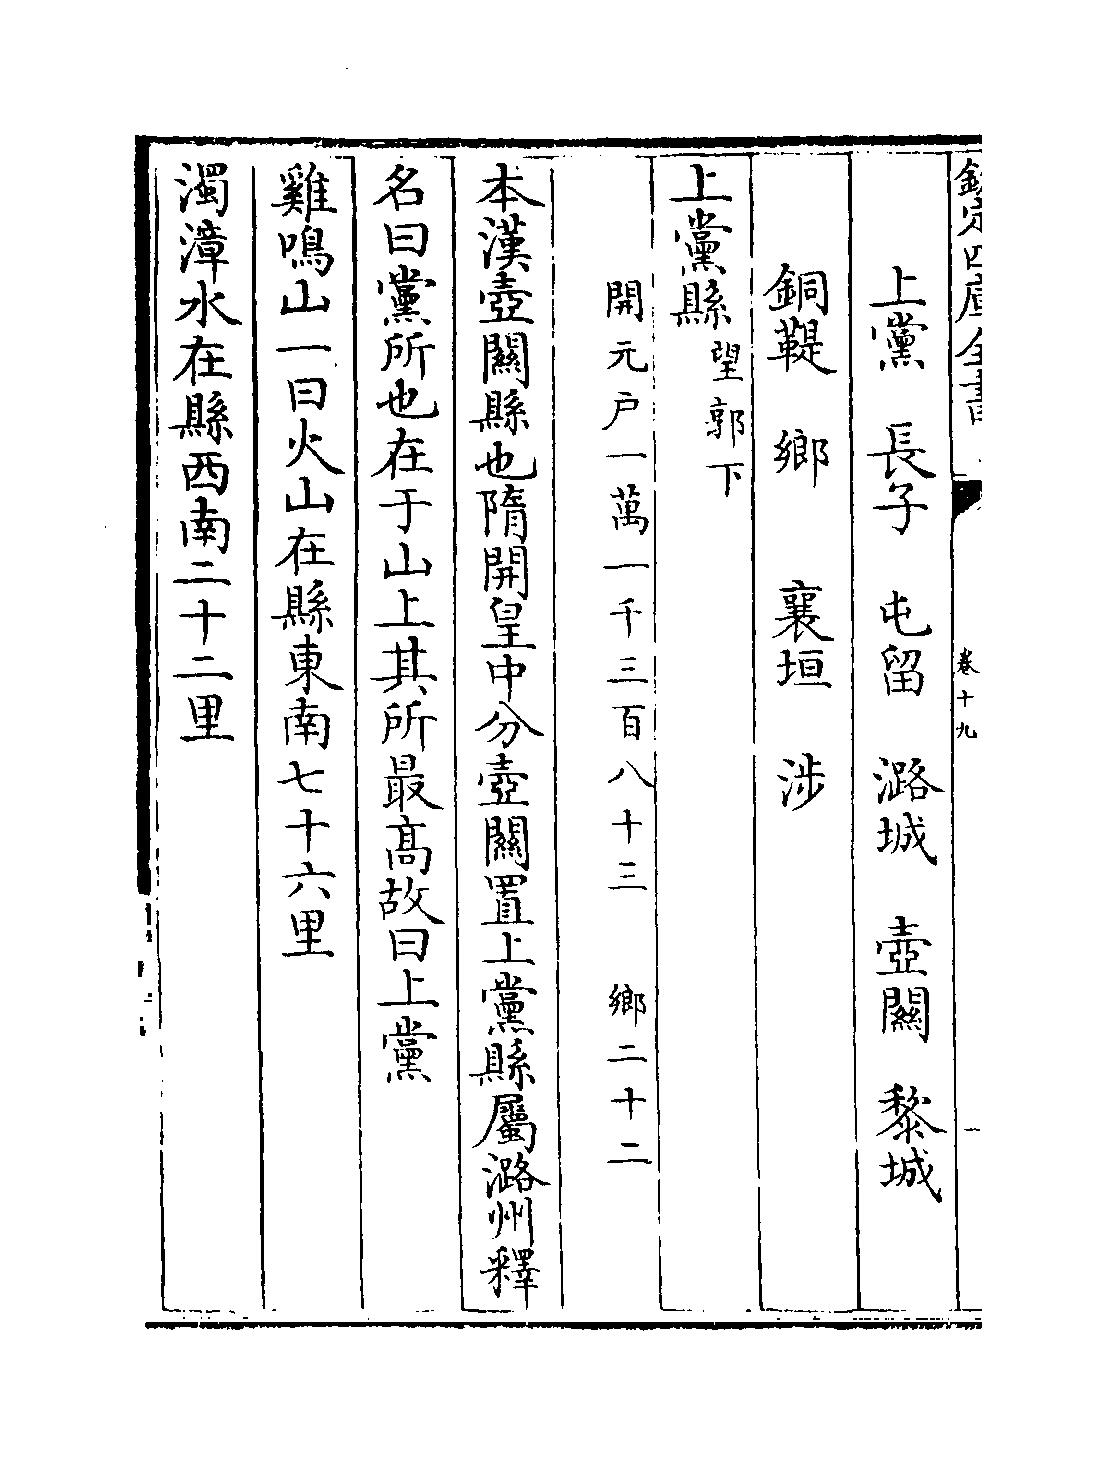 欽定四庫全書
卷十九
上黨　長子　屯留　潞城　壺關　黎城
銅鞮　鄉　襄垣　涉
上黨縣望郭下
開元户一萬一千三百八十三　鄉二十二
本漢壺關縣也隋開皇中分壺關置上黨縣屬潞州釋
名曰黨所也在于山上其所最高故曰上黨
雞鳴山一曰火山在縣東南七十六里
濁漳水在縣西南二十二里